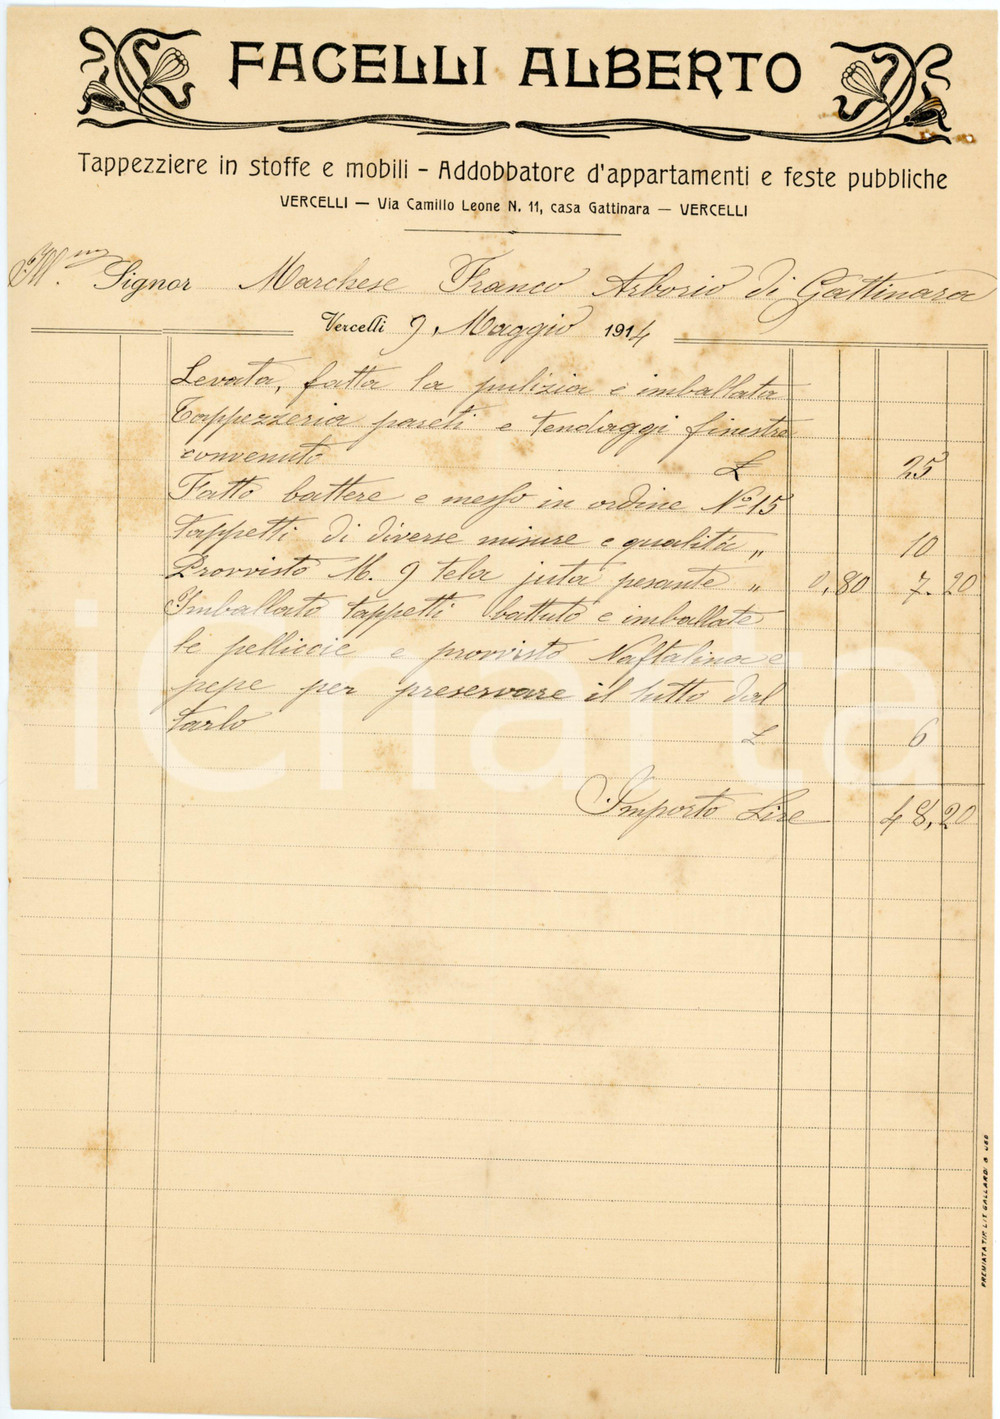 FACELLI ALBERTO
Tappezziere in stoffe e mobili - Addobbatore d'appartamenti e feste pubbliche
VERCELLI — Via Camillo Leone N. 11, casa Gattinara — VERCELLI
Ill.mo Signor Marchese Franco Arborio di Gattinara
Vercelli 9, Maggio 1914
Levata, fatta la pulizia e imballata
Tappezzeria pareti e tendaggi finestre
convenuto £ 25
Fatto battere e messo in ordine No 15
tappetti di diverse misure e qualità " 10
Provvisto M. 9 tela juta pesante " 0,80 7.20
Imballato tappetti battuto e imballate
le pelliccie e provvisto Naftalina e
pepe per preservare il tutto dal
tarlo £ 6
Importo Lire 48,20
iCharta
PREMIATA TIP. LIT. GALLARDI & UGO